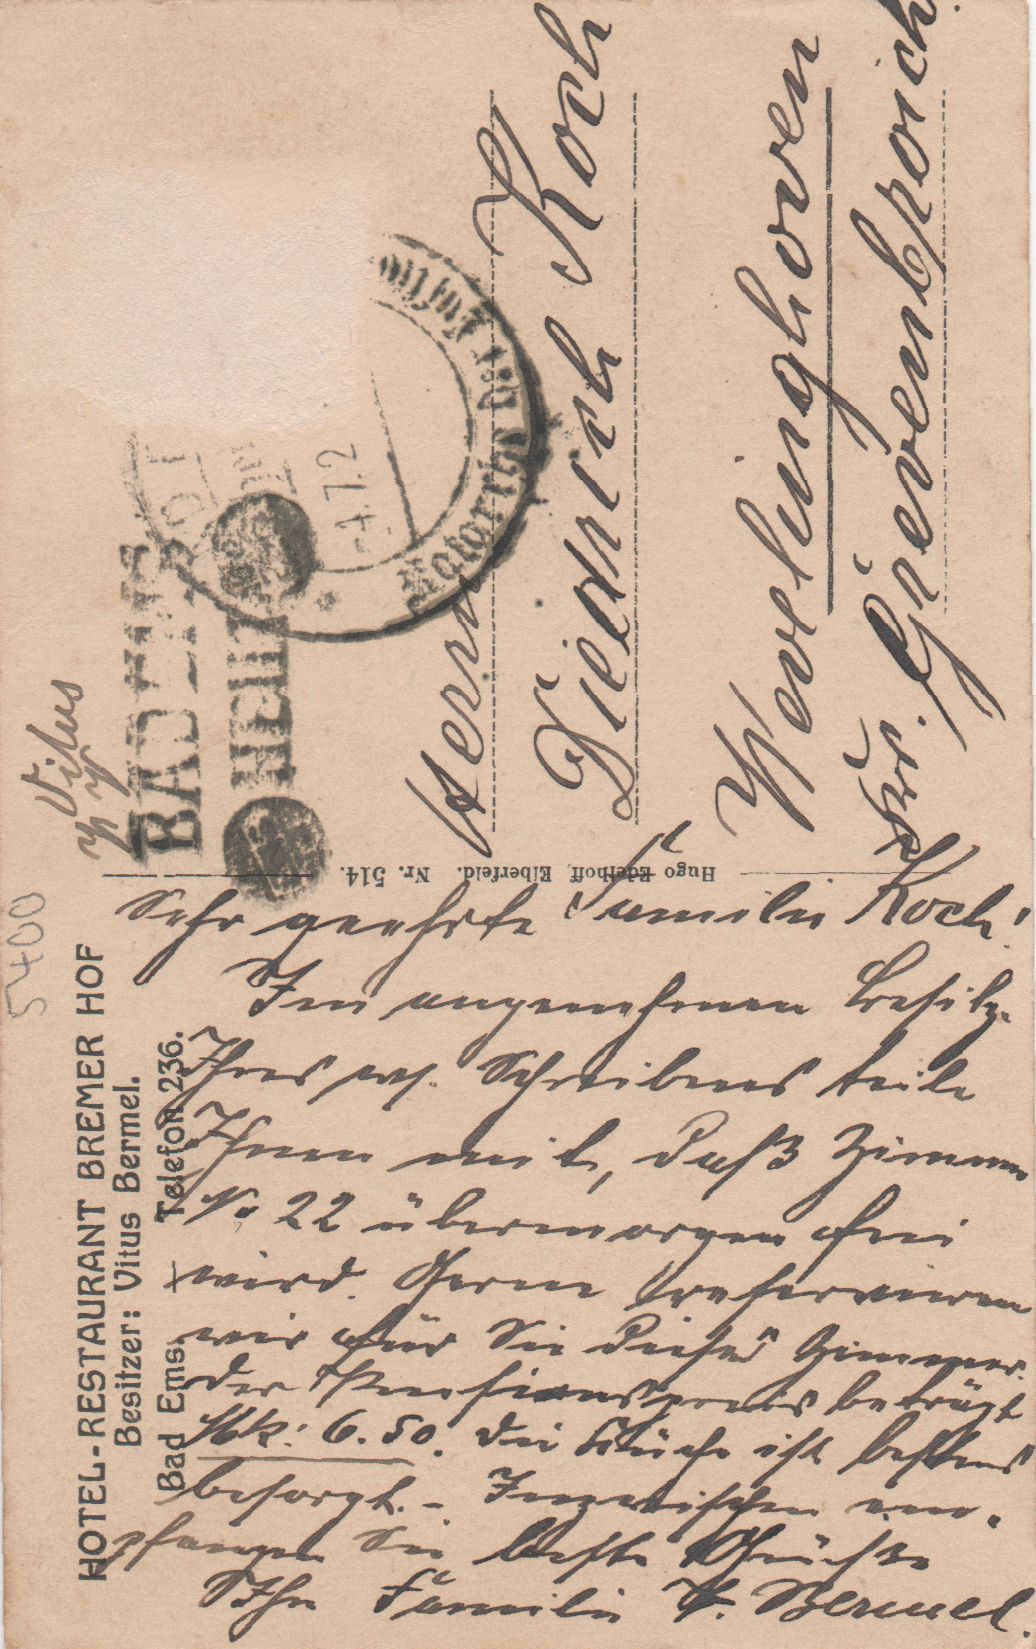 HOTEL-RESTAURANT BREMER HOF
Besitzer: Vitus Bermel.
Bad Ems. Telefon 236.
5400
Vitus
BAD EMS
-4.7.2
Hugo Edelhoff, Elberfeld. Nr. 514.
Herrn
Diedrich Koch
Wevelinghoven
Krs. Grevenbroich.
Sehr geehrte Familie Koch!
Im angenehmen Besitz
Ihres Schreibens teile
Ihnen mit, daß Zimmer
No 22 übermorgen frei
wird. Gerne reservieren
wir für Sie dieses Zimmer.
Der Pensionspreis beträgt
Mk: 6.50. Die Küche ist bestens
besorgt. - Inzwischen em-
pfangen Sie beste Grüße
Ihre Familie V. Bermel.